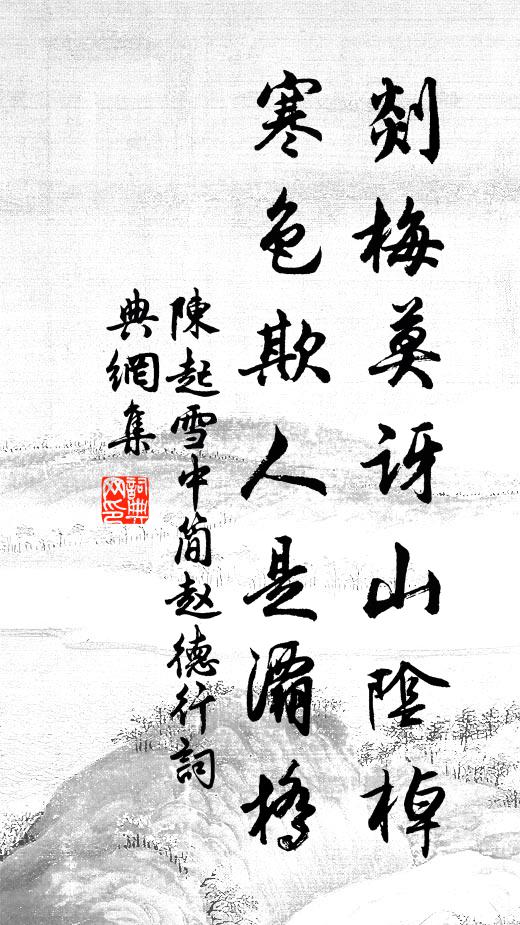 剡梅莫讶山陰棹
寒色欺人是灞橋
陳起雪中简赵德行詞
典網集
詞典網印